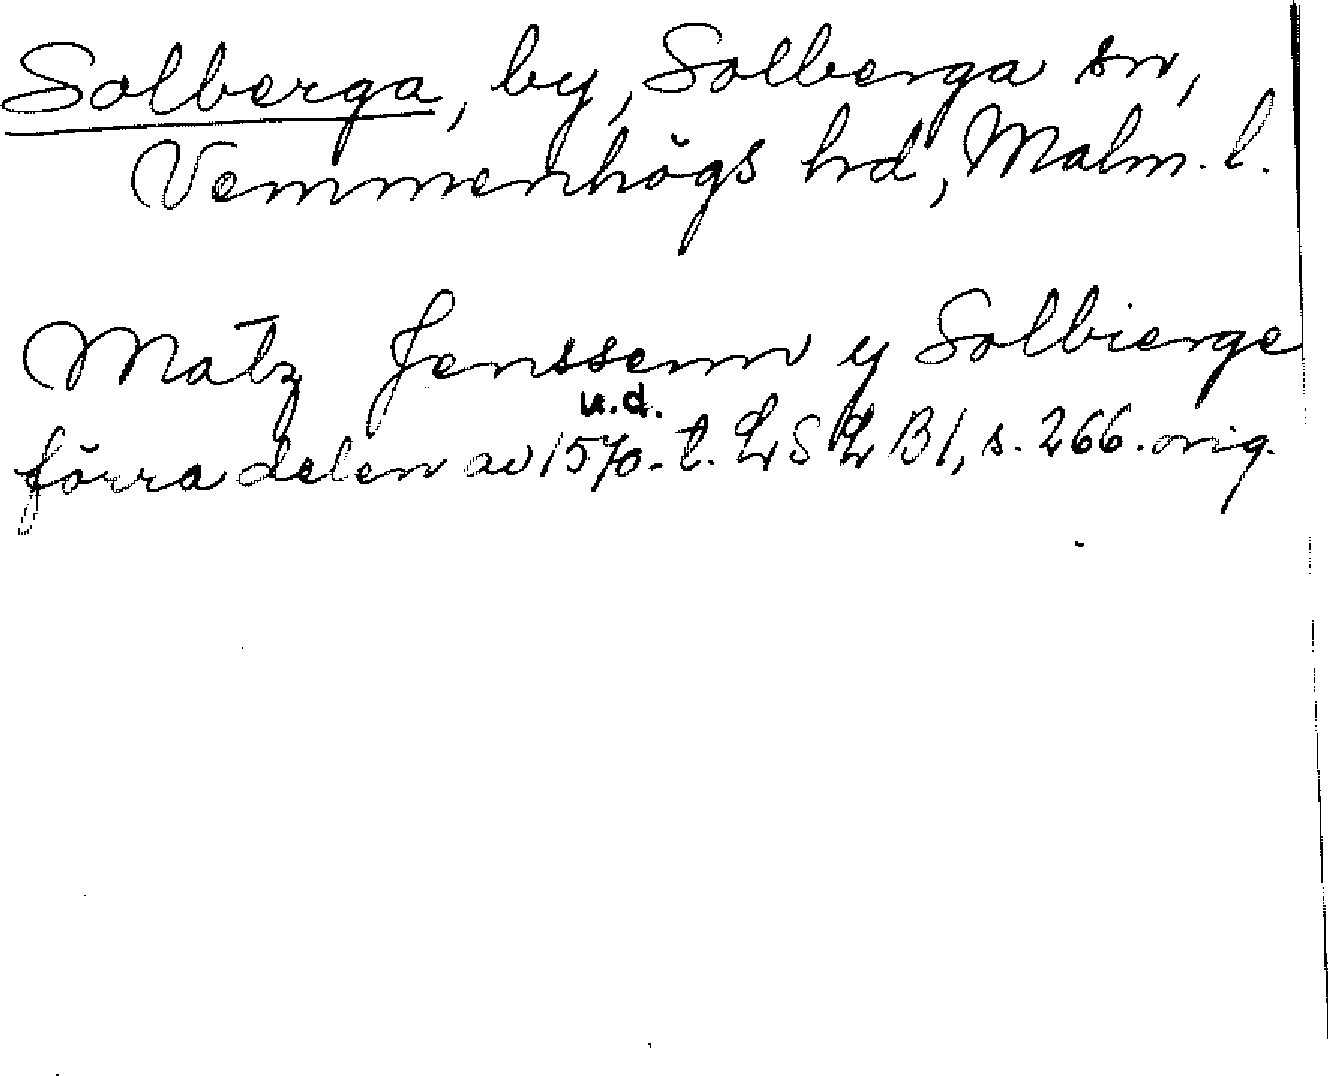 Solberga, by, Solberga sn,
Vemmenhögs hd, Malm. l.
Matz Jenssenn y Solbierge
u.d.
förra delen av 1570-t. LSLB1, s. 266. orig.